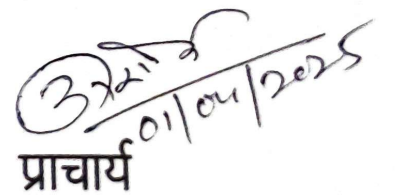 01/04/2025
प्राचार्य